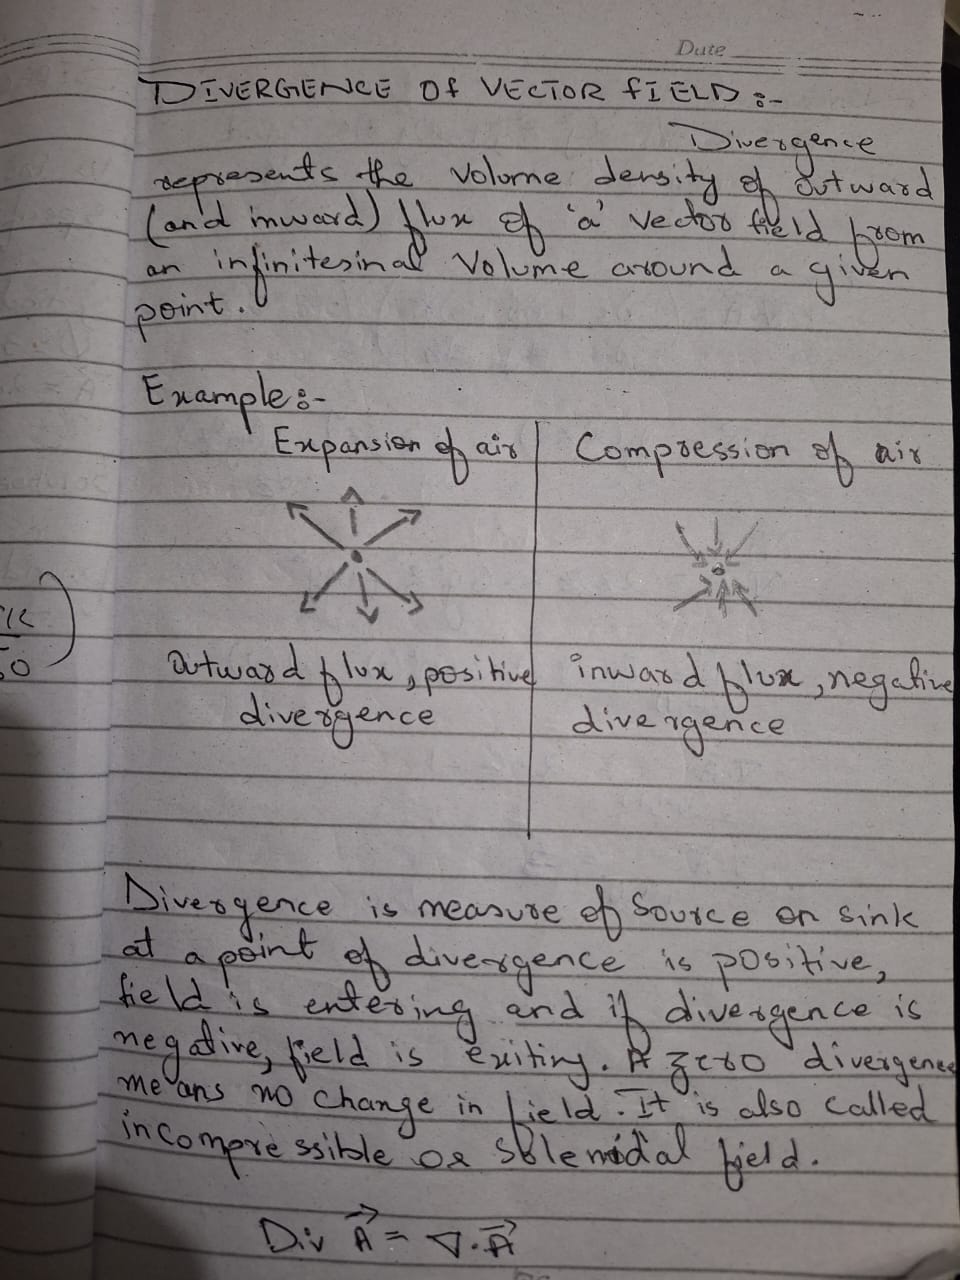 Date
DIVERGENCE OF VECTOR FIELD :-
Divergence
represents the volume density of outward
(and inward) flux of 'a' vector field from
an infinitesinal volume around a given
point.
Example :-
Expansion of air
Compression of air
outward flux, positive
divergence
inward flux, negative
divergence
Divergence is measure of source or sink
at a point of divergence is positive,
field is entering and if divergence is
negative, field is exiting. A zero divergence
means no change in field. It is also called
incompressible or solenoidal field.
Div A⃗ = ∇·A⃗